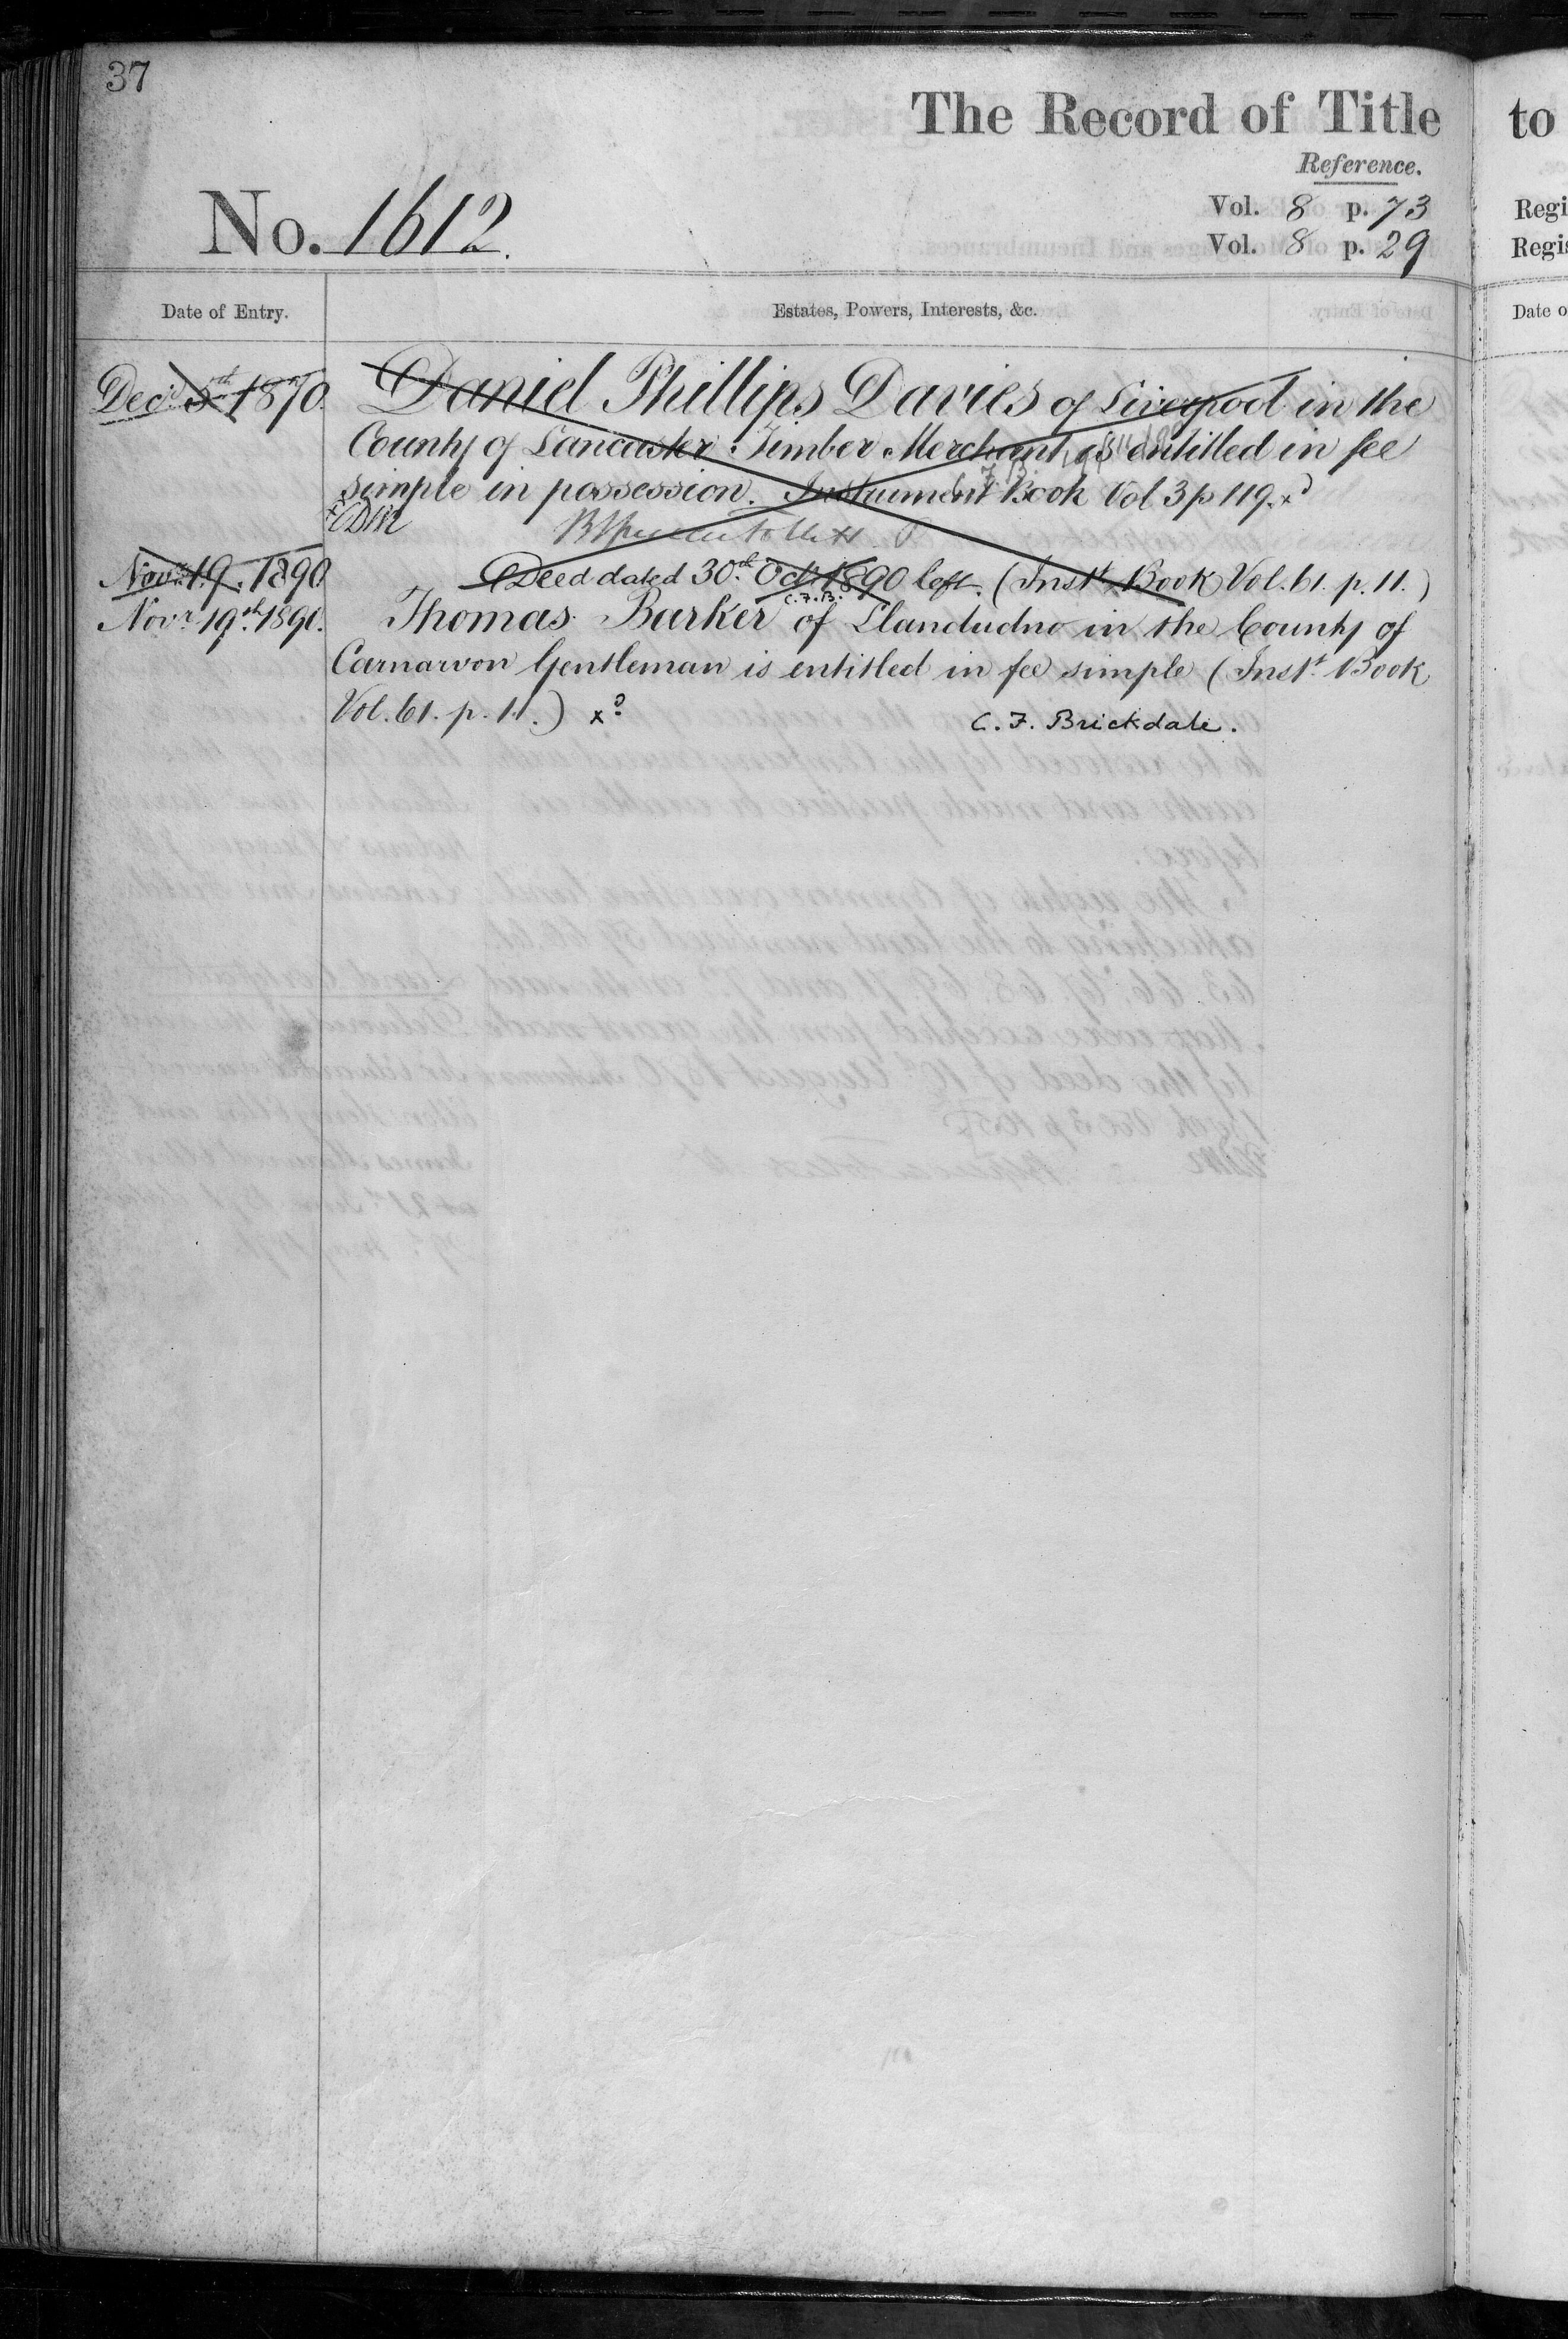 37
The Record of Title
Reference.
No. 1612.
Vol. 8 p. 73
Vol. 8 p. 29
Date of Entry.
Estates, Powers, Interests, &c.
Decr. 5th 1870. Daniel Phillips Davies of Liverpool in the
County of Lancaster Timber Merchant is entitled in fee
simple in possession. Instrument Book Vol 3 p 119. xd
Novr. 19. 1890 Deed dated 30th Octr 1890 left. (Inst. Book Vol. 61. p. 11.)
C.F.B.
Novr. 19th 1890. Thomas Barker of Llandudno in the County of
Carnarvon Gentleman is entitled in fee simple (Inst. Book
Vol. 61. p. 11.) xd
C. F. Brickdale.
to
Regi
Regis
Date o